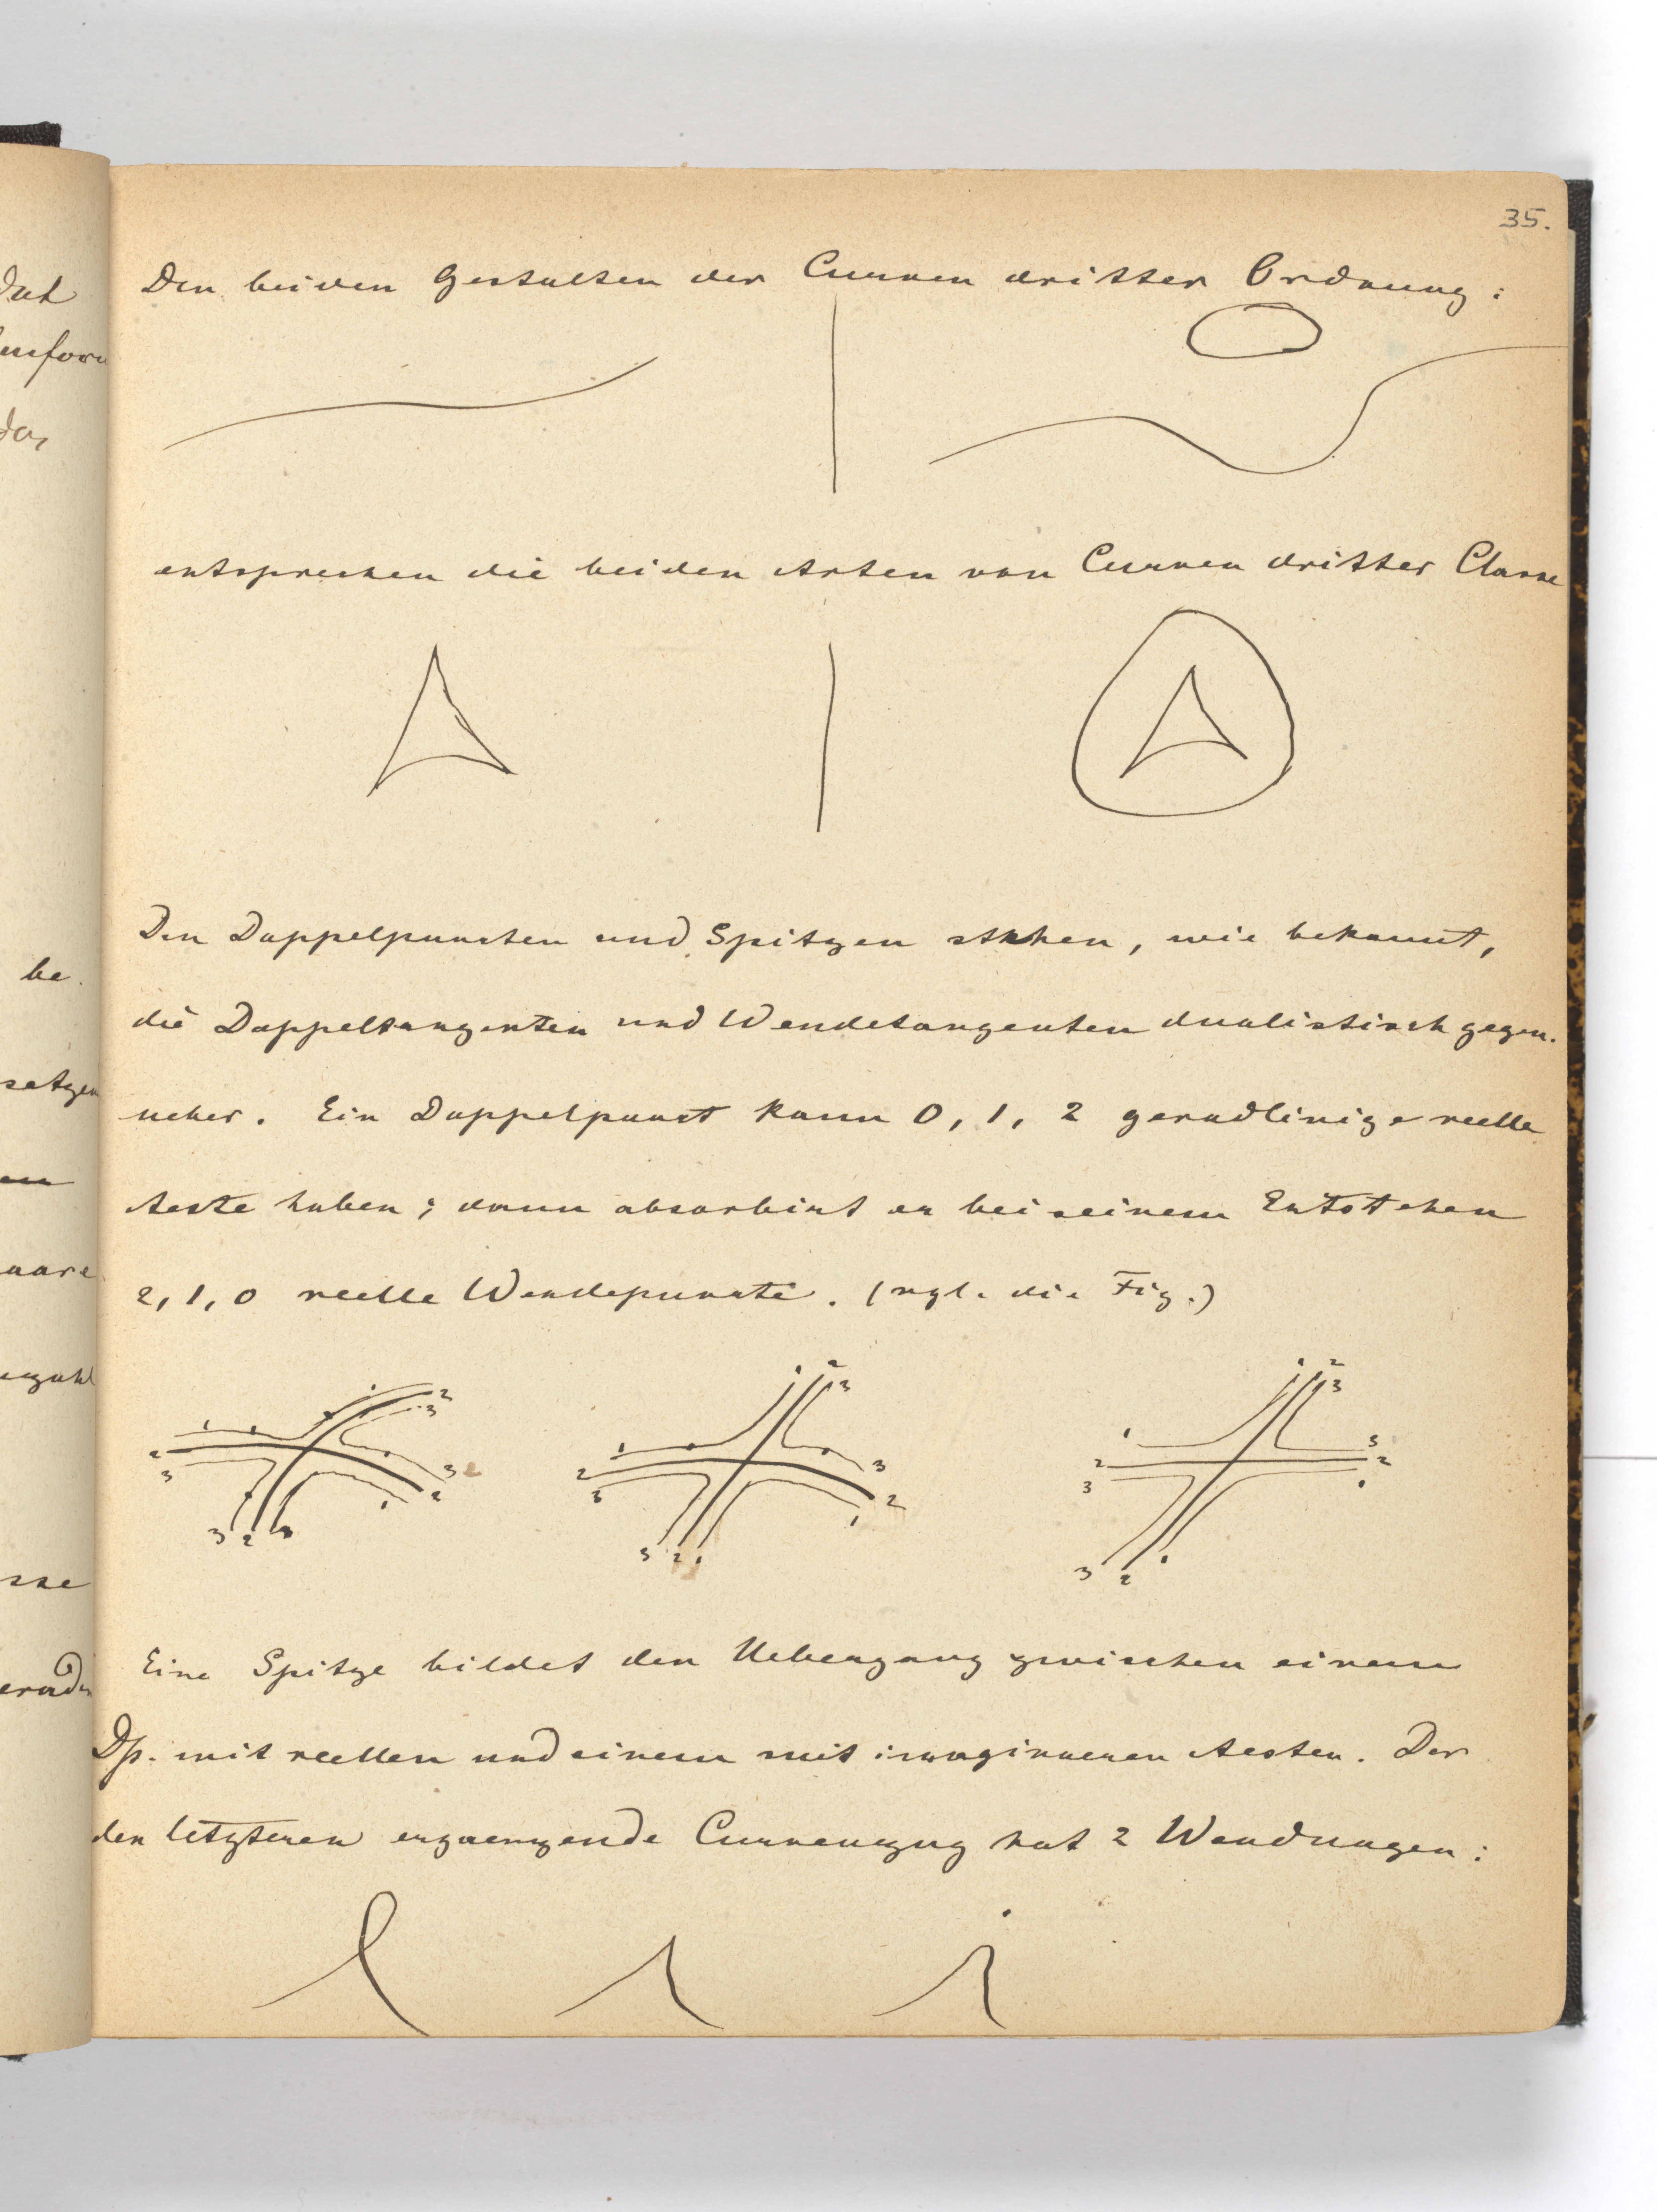 35.
Den beiden Gestalten der Curven dritter Ordnung:
entsprechen die beiden Arten von Curven dritter Classe
Den Doppelpuncten und Spitzen stehen, wie bekannt,
die Doppeltangenten und Wendetangenten dualistisch gegen-
ueber. Ein Doppelpunct kann 0, 1, 2 geradlinige reelle
Aeste haben; dann absorbirt er bei seinem Entstehen
2, 1, 0 reelle Wendepuncte. (vgl. die Fig.)
1 2 3
1 2 3
3 2 1
3 2 1
1 2 3
1 2 3
3 2 1
3 2 1
1 2 3
1 2 3
3 2 1
3 2 1
Eine Spitze bildet den Uebergang zwischen einem
Dp. mit reellen und einem mit imaginaeren Aesten. Der
den letzteren ergaenzende Curvenzug hat 2 Wendungen:
be
setzen
aare
nzahl